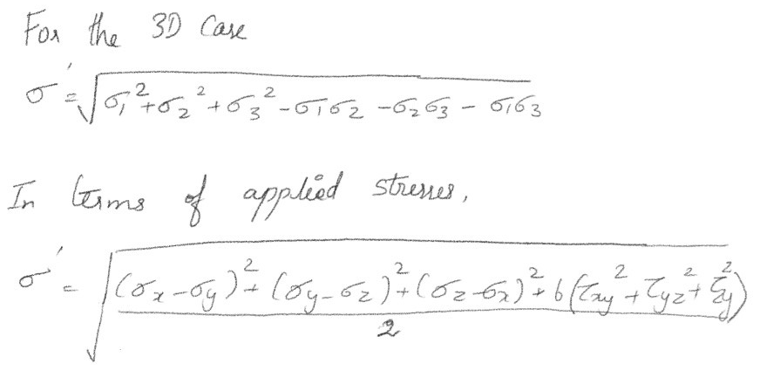 For the 3D Case
σ' = √(σ₁² + σ₂² + σ₃² - σ₁σ₂ - σ₂σ₃ - σ₁σ₃)
In terms of applied stresses,
σ' = √(((σx - σy)² + (σy - σz)² + (σz - σx)² + 6(τxy² + τyz² + τzy²)) / 2)